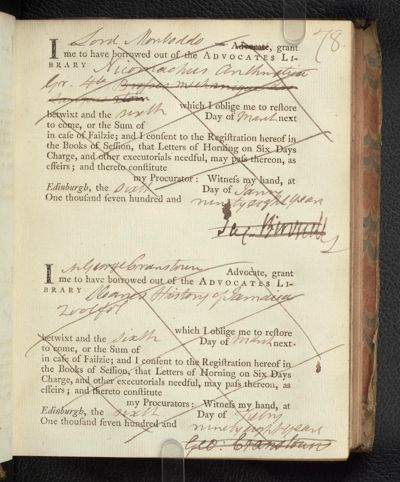 78.
I Lord Monboddo Advocate, grant
me to have borrowed out of the ADVOCATES LI-
BRARY Nicomachus Arithmetica
Gr. 4to
which I oblige me to restore
betwixt and the sixth Day of March next
to come, or the Sum of
in case of Failzie; and I consent to the Registration hereof in
the Books of Session, that Letters of Horning on Six Days
Charge, and other executorials needful, may pass thereon, as
effeirs; and thereto constitute
my Procurator: Witness my hand, at
Edinburgh, the sixth Day of Janry
One thousand seven hundred and ninety eight years
Ja. Burnett
I Mr George Cranstoun Advocate, grant
me to have borrowed out of the ADVOCATES LI-
BRARY History of Jamaica
2 vol fol
which I oblige me to restore
betwixt and the sixth Day of March next.
to come, or the Sum of
in case of Failzie; and I consent to the Registration hereof in
the Books of Session, that Letters of Horning on Six Days
Charge, and other executorials needful, may pass thereon, as
effeirs; and thereto constitute
my Procurators: Witness my hand, at
Edinburgh, the sixth Day of
One thousand seven hundred and ninety eight years
Geo: Cranstoun